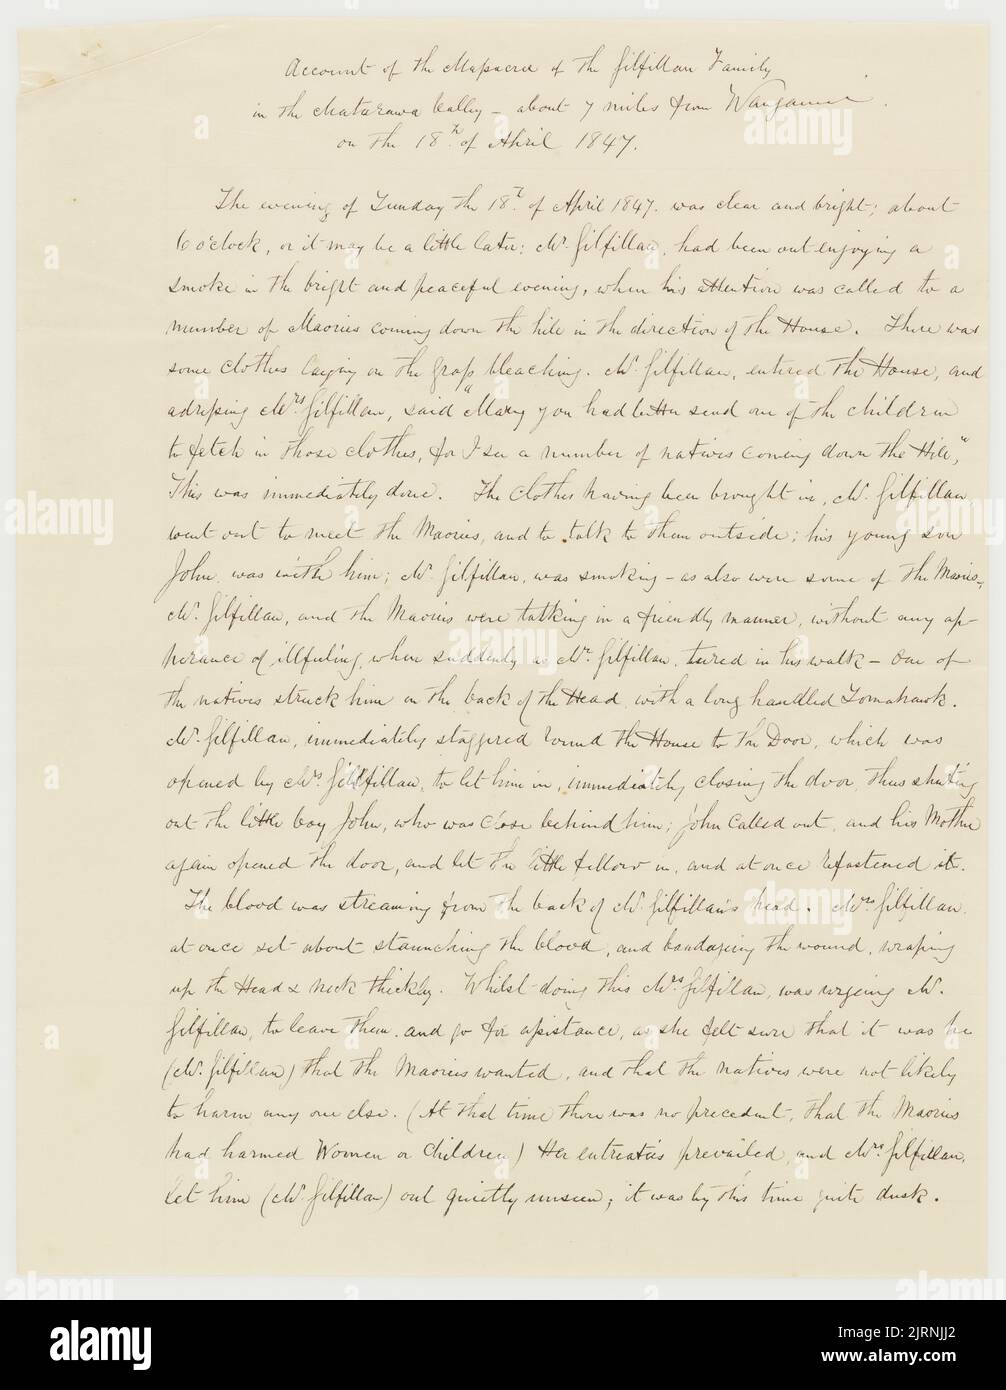 Account of the Massacre of the Gilfillan Family
in the Matarawa Valley – about 7 miles from Wanganui.
on the 18th of April 1847.
The evening of Sunday the 18th of April 1847. was clear and bright; about
6 o'clock, or it may be a little later: Mr. Gilfillan, had been out enjoying a
smoke in the bright and peaceful evening, when his attention was called to a
number of Maories coming down the hill in the direction of the House. There was
some clothes laying on the Grass bleaching. Mr. Gilfillan, entered the House, and
adressing Mrs. Gilfillan, said "Mary you had better send one of the children
to fetch in those clothes, for I see a number of natives coming down the Hill,"
This was immediately done. The clothes having been brought in, Mr. Gilfillan,
went out to meet the Maories, and to talk to them outside; his young son
John, was with him; Mr. Gilfillan, was smoking – as also were some of the Maories –,
Mr. Gilfillan, and the Maories were talking in a friendly manner, without any ap-
perance of illfeeling, when suddenly as Mr. Gilfillan, turned in his walk – One of
the natives struck him in the back of the Head, with a long handled Tomahawk.
Mr. Gilfillan, immediately staggered round the House to the Door, which was
opened by Mrs Gilfillan, to let him in, immediately closing the door, thus shuting
out the little boy John, who was close behind him; John called out, and his Mother
again opened the door, and let the little fellow in, and at once refastened it.
The blood was streaming from the back of Mr. Gilfillan's head. Mrs. Gilfillan,
at once set about staunching the blood, and bandaging the wound, wraping
up the Head & neck thickly. Whilst doing this Mrs Gilfillan, was urgeing Mr.
Gilfillan, to leave them, and go for assistance, as she felt sure that it was he
(Mr. Gilfillan) that the Maories wanted, and that the natives were not likely
to harm any one else. (At that time there was no precedent, that the Maories
had harmed Women or Children) Her entreaties prevailed, and Mrs. Gilfillan,
let him (Mr. Gilfillan) out quietly unseen; it was by this time quite dusk.
alamy
Image ID: 2JRNJJ2
www.alamy.com